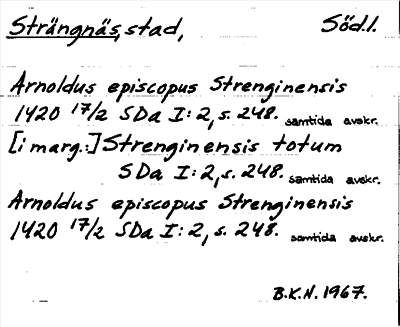 Strängnäs, stad, Södl.
Arnoldus episcopus Strenginensis
1420 17/2 SDa I:2, s. 248. samtida avskr.
[i marg.:] Strenginensis totum
SDa I:2, s. 248. samtida avskr.
Arnoldus episcopus Strenginensis
1420 17/2 SDa I:2, s. 248. samtida avskr.
B.K.N. 1967.